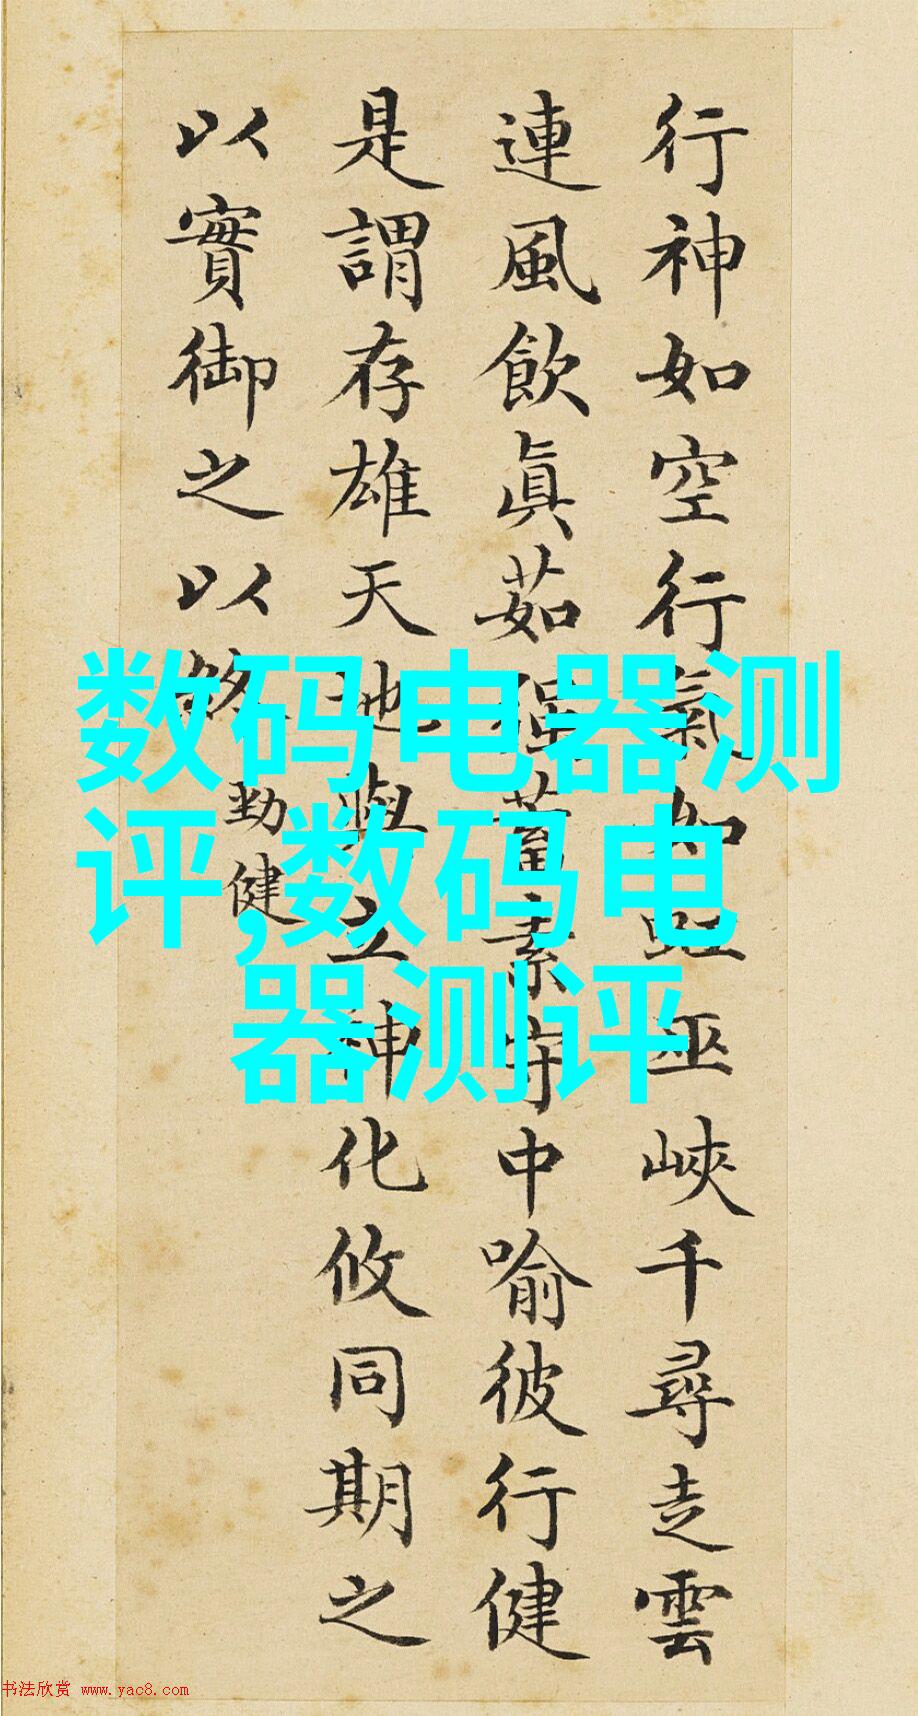 行神如空行氣如虹巫峽千尋走雲
連風飲眞茹强蓄素守中喻彼行健
是謂存雄天地與立神化攸同期之
以實御之以終
勁健
数码电器测
评,数码电
器测评
书法欣赏 www.yac8.com